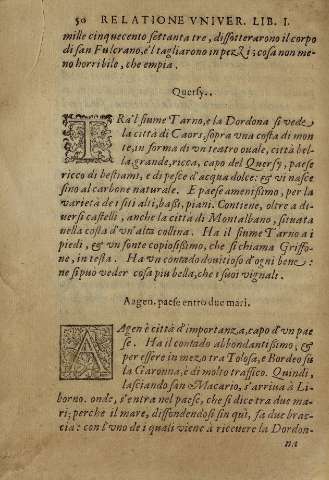 50 RELATIONE VNIVER. LIB. I.
mille cinquecento settanta tre, dissotterarono il corpo
di san Fulcrano, e'l tagliarono in pezzi; cosa non me-
no horribile, che empia.
Quersy.
TRA'l fiume Tarno, e la Dordona si vede
la città di Caors, sopra vna costa di mon
te, in forma di vn teatro ouale, città bel-
la, grande, ricca, capo del Quersy, paese
ricco di bestiami, e di pesce d'acqua dolce: & vi nasce
sino al carbone naturale. E paese amenissimo, per la
varietà de i siti alti, bassi, piani. Contiene, oltre a di-
uersi castelli, anche la città di Montalbano, situata
nella costa d'vn'alta collina. Ha il fiume Tarno a i
piedi, & vn fonte copiosissimo, che si chiama Griffo-
ne, in testa. Ha vn contado douitioso d'ogni bene:
ne si può veder cosa piu bella, che i suoi vignali.
Aagen, paese entro due mari.
AAgen è città d'importanza, capo d'vn pae
se. Ha il contado abbondantissimo; &
per essere in mezo tra Tolosa, e Bordeo su
la Garonna, è di molto traffico. Quindi,
lasciando san Macario, s'arriua à Li-
borno. onde, s'entra nel paese, che si dice tra due ma-
ri; perche il mare, diffondendosi sin quì, fa due brac-
cia: con l'vno de i quali viene à riceuere la Dordon-
na